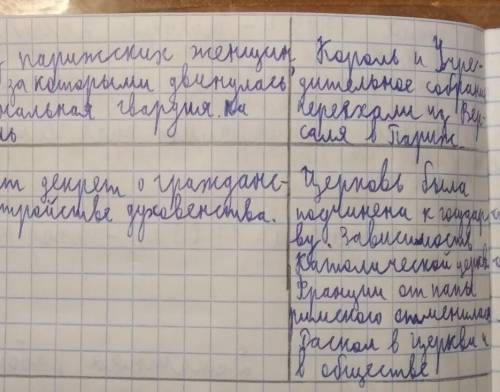 парижских женщин
за которыми двинулась
нальная гвардия. на
ль
Король и Учре-
дительное собрание
переехали из Вер-
саля в Париж.
т декрет о гражданс-
тройстве духовенства.
Церковь была
подчинена к государ
ву. Зависимость
Католической церкв
Франции от папы
римского отменилась.
Раскол в церкви и
в обществе